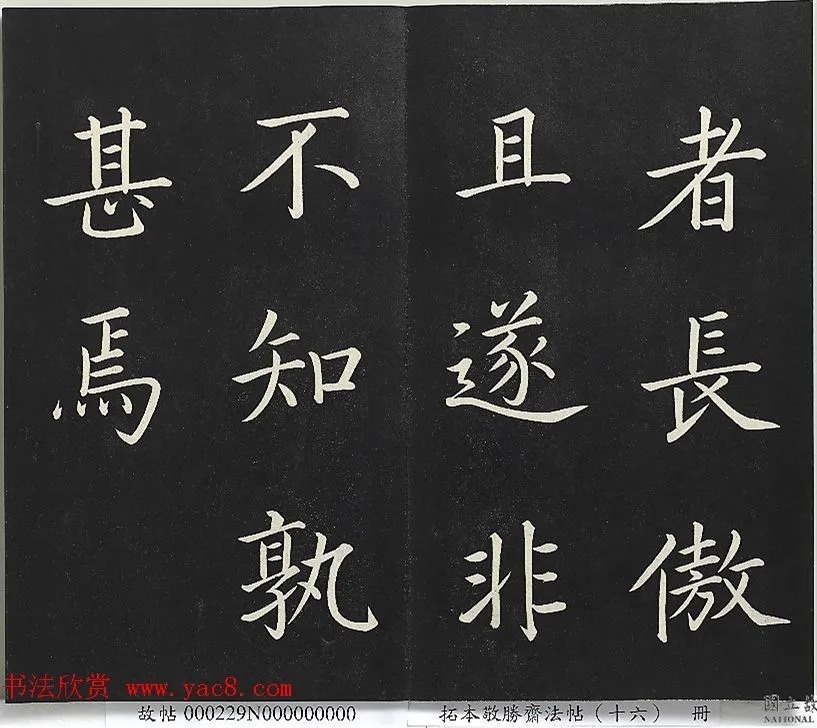 者長傲
且遂非
不知孰
甚焉
书法欣赏 www.yac8.com
故帖 000229N000000000
拓本敬勝齋法帖（十六） 冊
國立故
NATIONAL